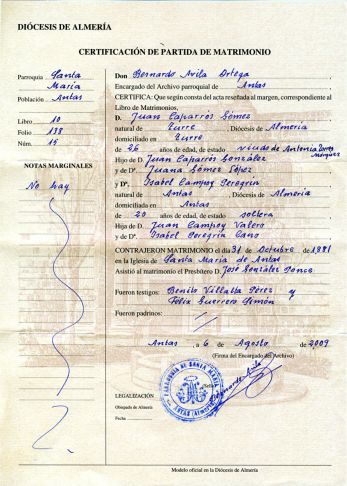 DIÓCESIS DE ALMERÍA
CERTIFICACIÓN DE PARTIDA DE MATRIMONIO
Parroquia Santa
María
Población Antas
Libro 10
Folio 138
Núm. 15
NOTAS MARGINALES
No hay
Don Bernardo Avila Ortega
Encargado del Archivo parroquial de Antas
CERTIFICA: Que según consta del acta reseñada al margen, correspondiente al
Libro de Matrimonios,
D. Juan Caparrós Gómez
natural de Turre, Diócesis de Almería
domiciliado en Turre
de 26 años de edad, de estado viudo de Antonia Flores
Márquez
Hijo de D. Juan Caparrós González
y de Dª. Juana Gómez López
y Dª. Isabel Campoy Peregrín
natural de Antas, Diócesis de Almería
domiciliada en Antas
de 20 años de edad, de estado soltera
Hija de D. Juan Campoy Valero
y de Dª. Isabel Peregrín Cano
CONTRAJERON MATRIMONIO el día 31 de Octubre de 1881
en la Iglesia de Santa María de Antas
Asistió al matrimonio el Presbítero D. José González Ponce
Fueron testigos: Benito Villalba Pérez y
Félix Guerrero Simón
Fueron padrinos:
Antas, a 6 de Agosto de 2009
(Firma del Encargado del Archivo)
Bernardo Avila
(Sello)
PARROQUIA DE SANTA MARIA
ANTAS (Almería)
LEGALIZACIÓN
Obispado de Almería
Fecha
Modelo oficial en la Diócesis de Almería